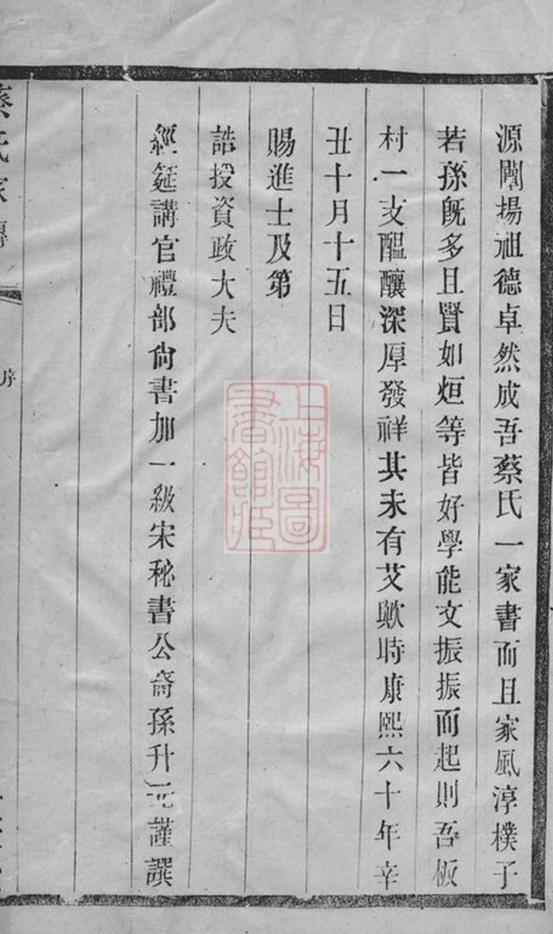 源闡揚祖德卓然成吾蔡氏一家書而且家風淳樸子
若孫旣多且賢如烜等皆好學能文振振而起則吾板
村一支醞釀深厚發祥其未有艾歟時康熙六十年辛
丑十月十五日
賜進士及第
誥授資政大夫
經筵講官禮部尙書加一級宋秘書公裔孫升元謹譔
蔡氏家傳
序
上海圖
書館藏